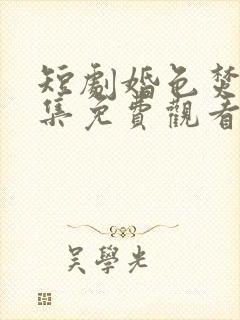 短劇婚色焚
集免費觀看
吳學光